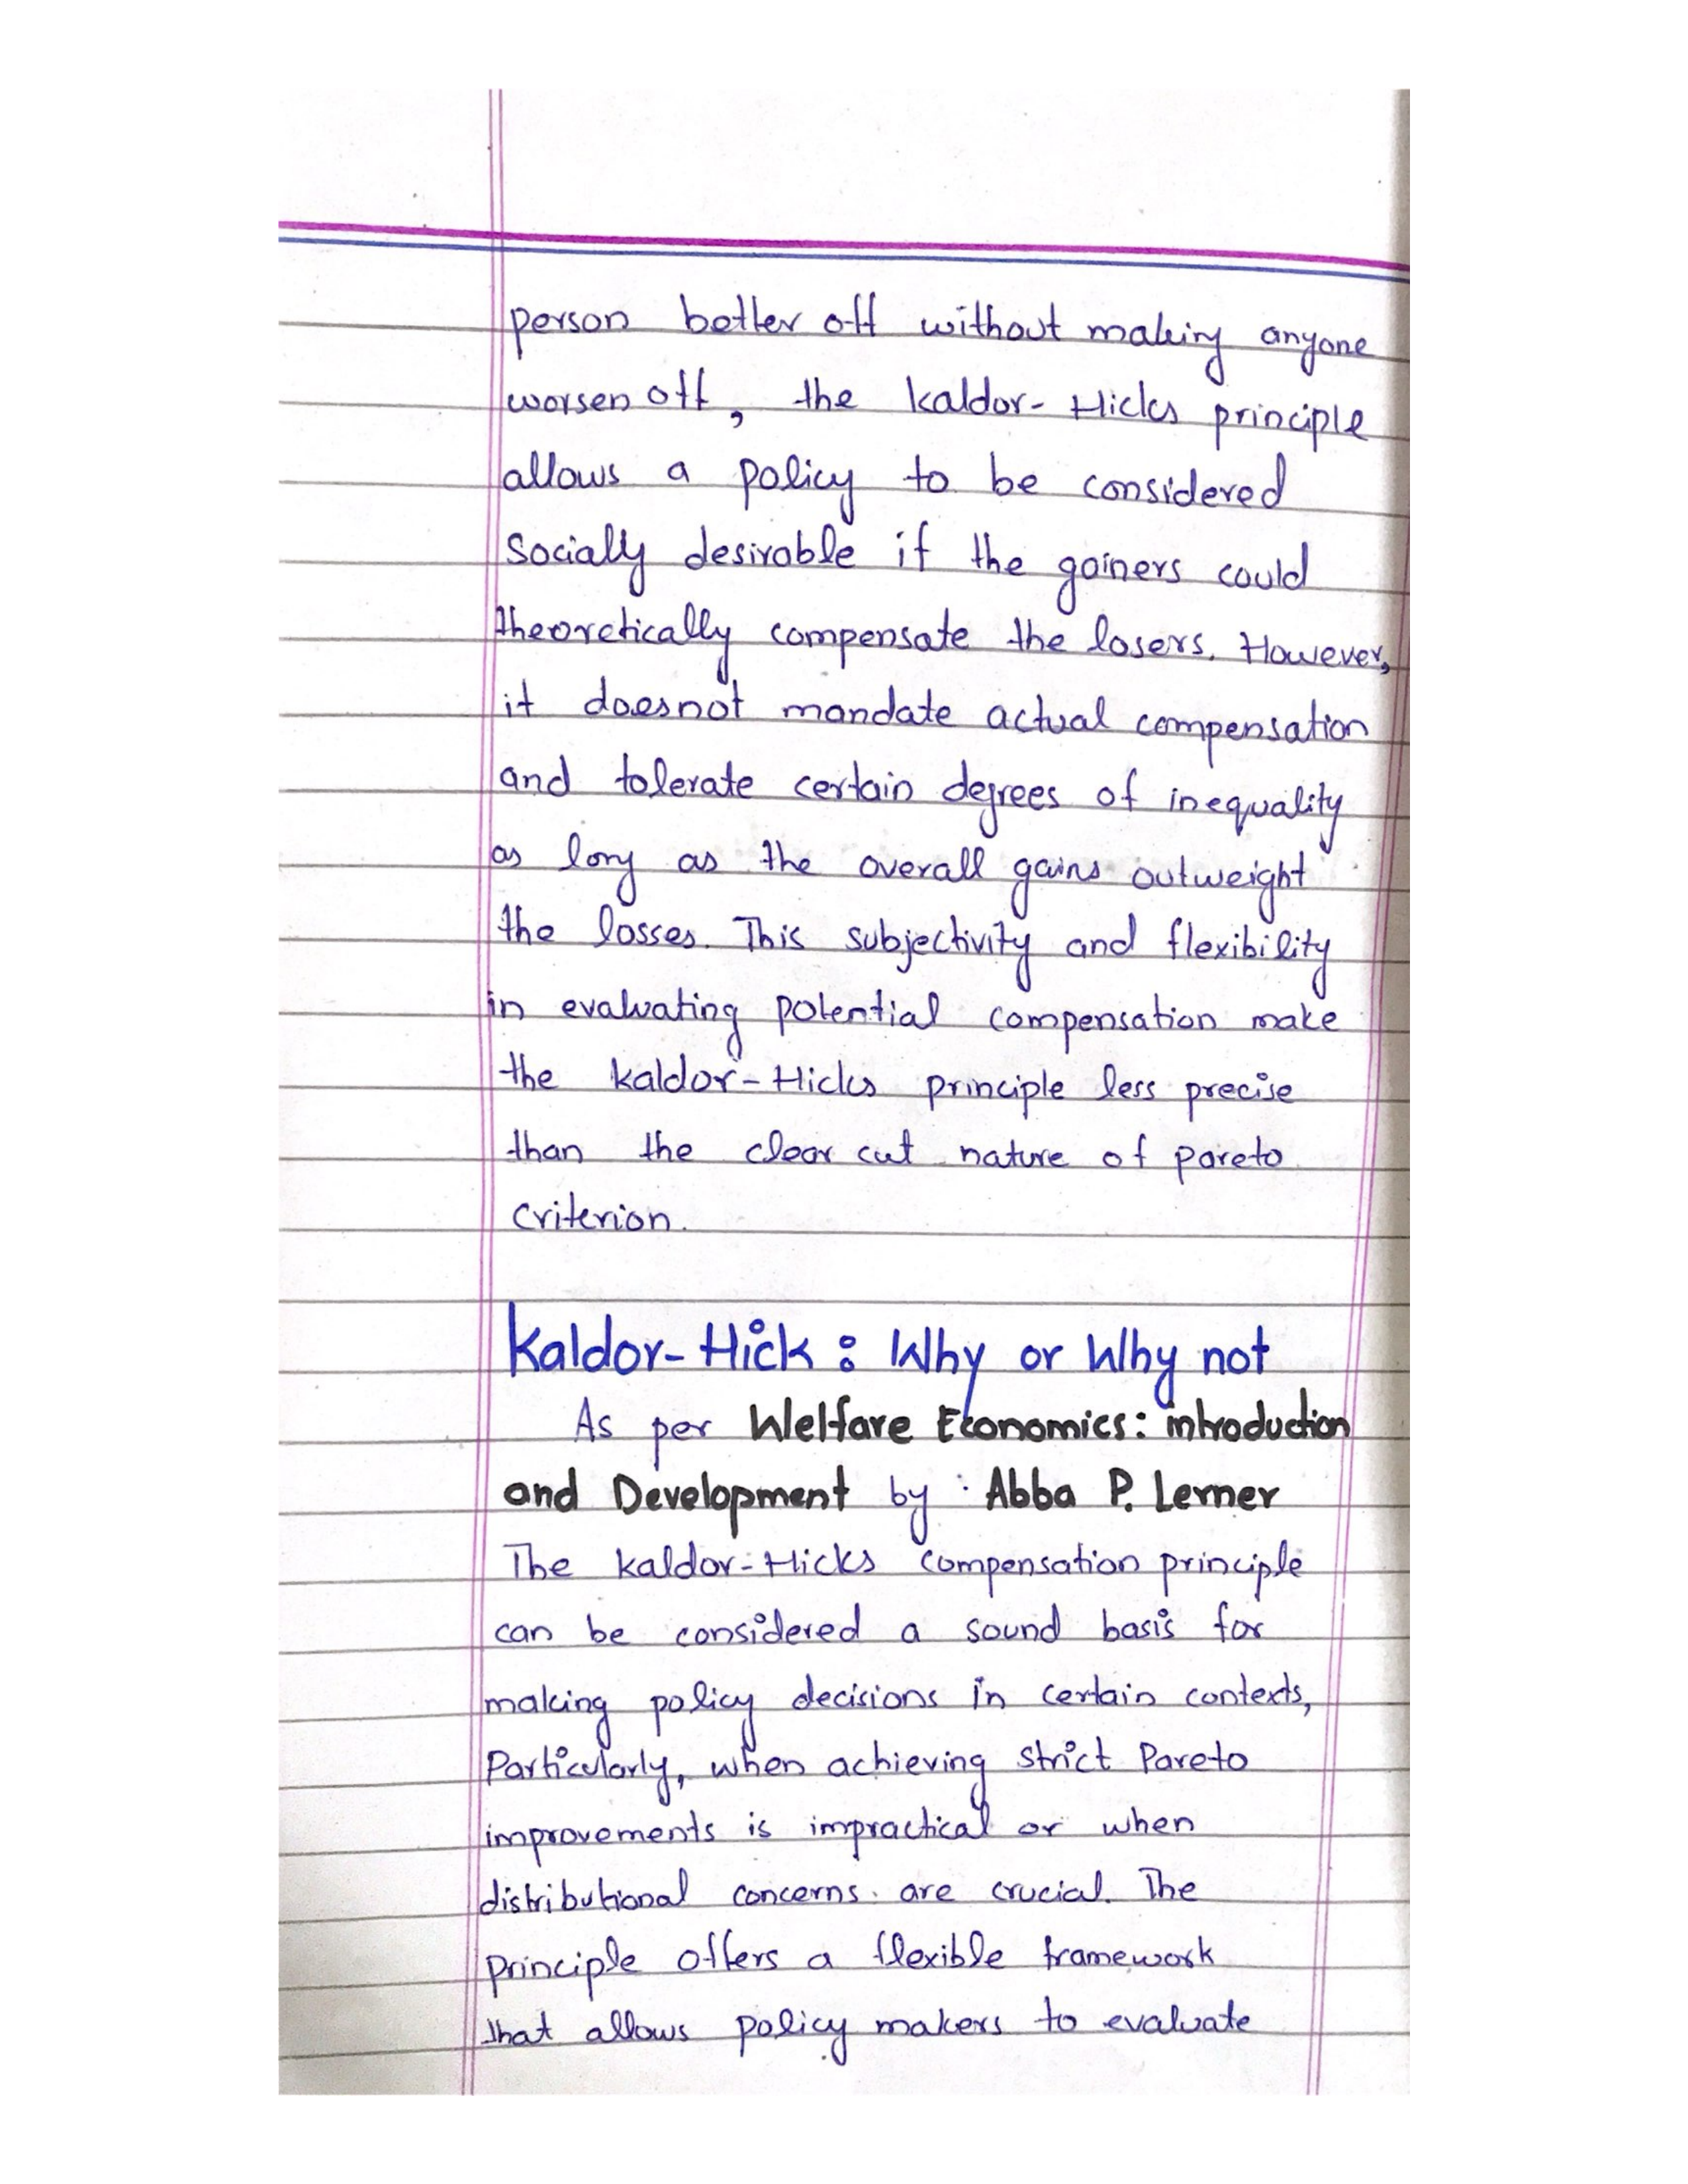 person better off without making anyone
worsen off, the Kaldor-Hicks principle
allows a policy to be considered
Socially desirable if the gainers could
theoretically compensate the losers. However,
it doesnot mandate actual compensation
and tolerate certain degrees of inequality
as long as the overall gains outweight
the losses. This subjectivity and flexibility
in evaluating potential compensation make
the kaldor-Hicks principle less precise
than the clear cut nature of pareto
criterion.
Kaldor-Hick : Why or Why not
As per Welfare Economics: introduction
and Development by : Abba P. Lerner
The kaldor-Hicks compensation principle
can be considered a sound basis for
making policy decisions in certain contexts,
Particularly, when achieving strict Pareto
improvements is impractical or when
distributional concerns are crucial. The
principle offers a flexible framework
that allows policy makers to evaluate